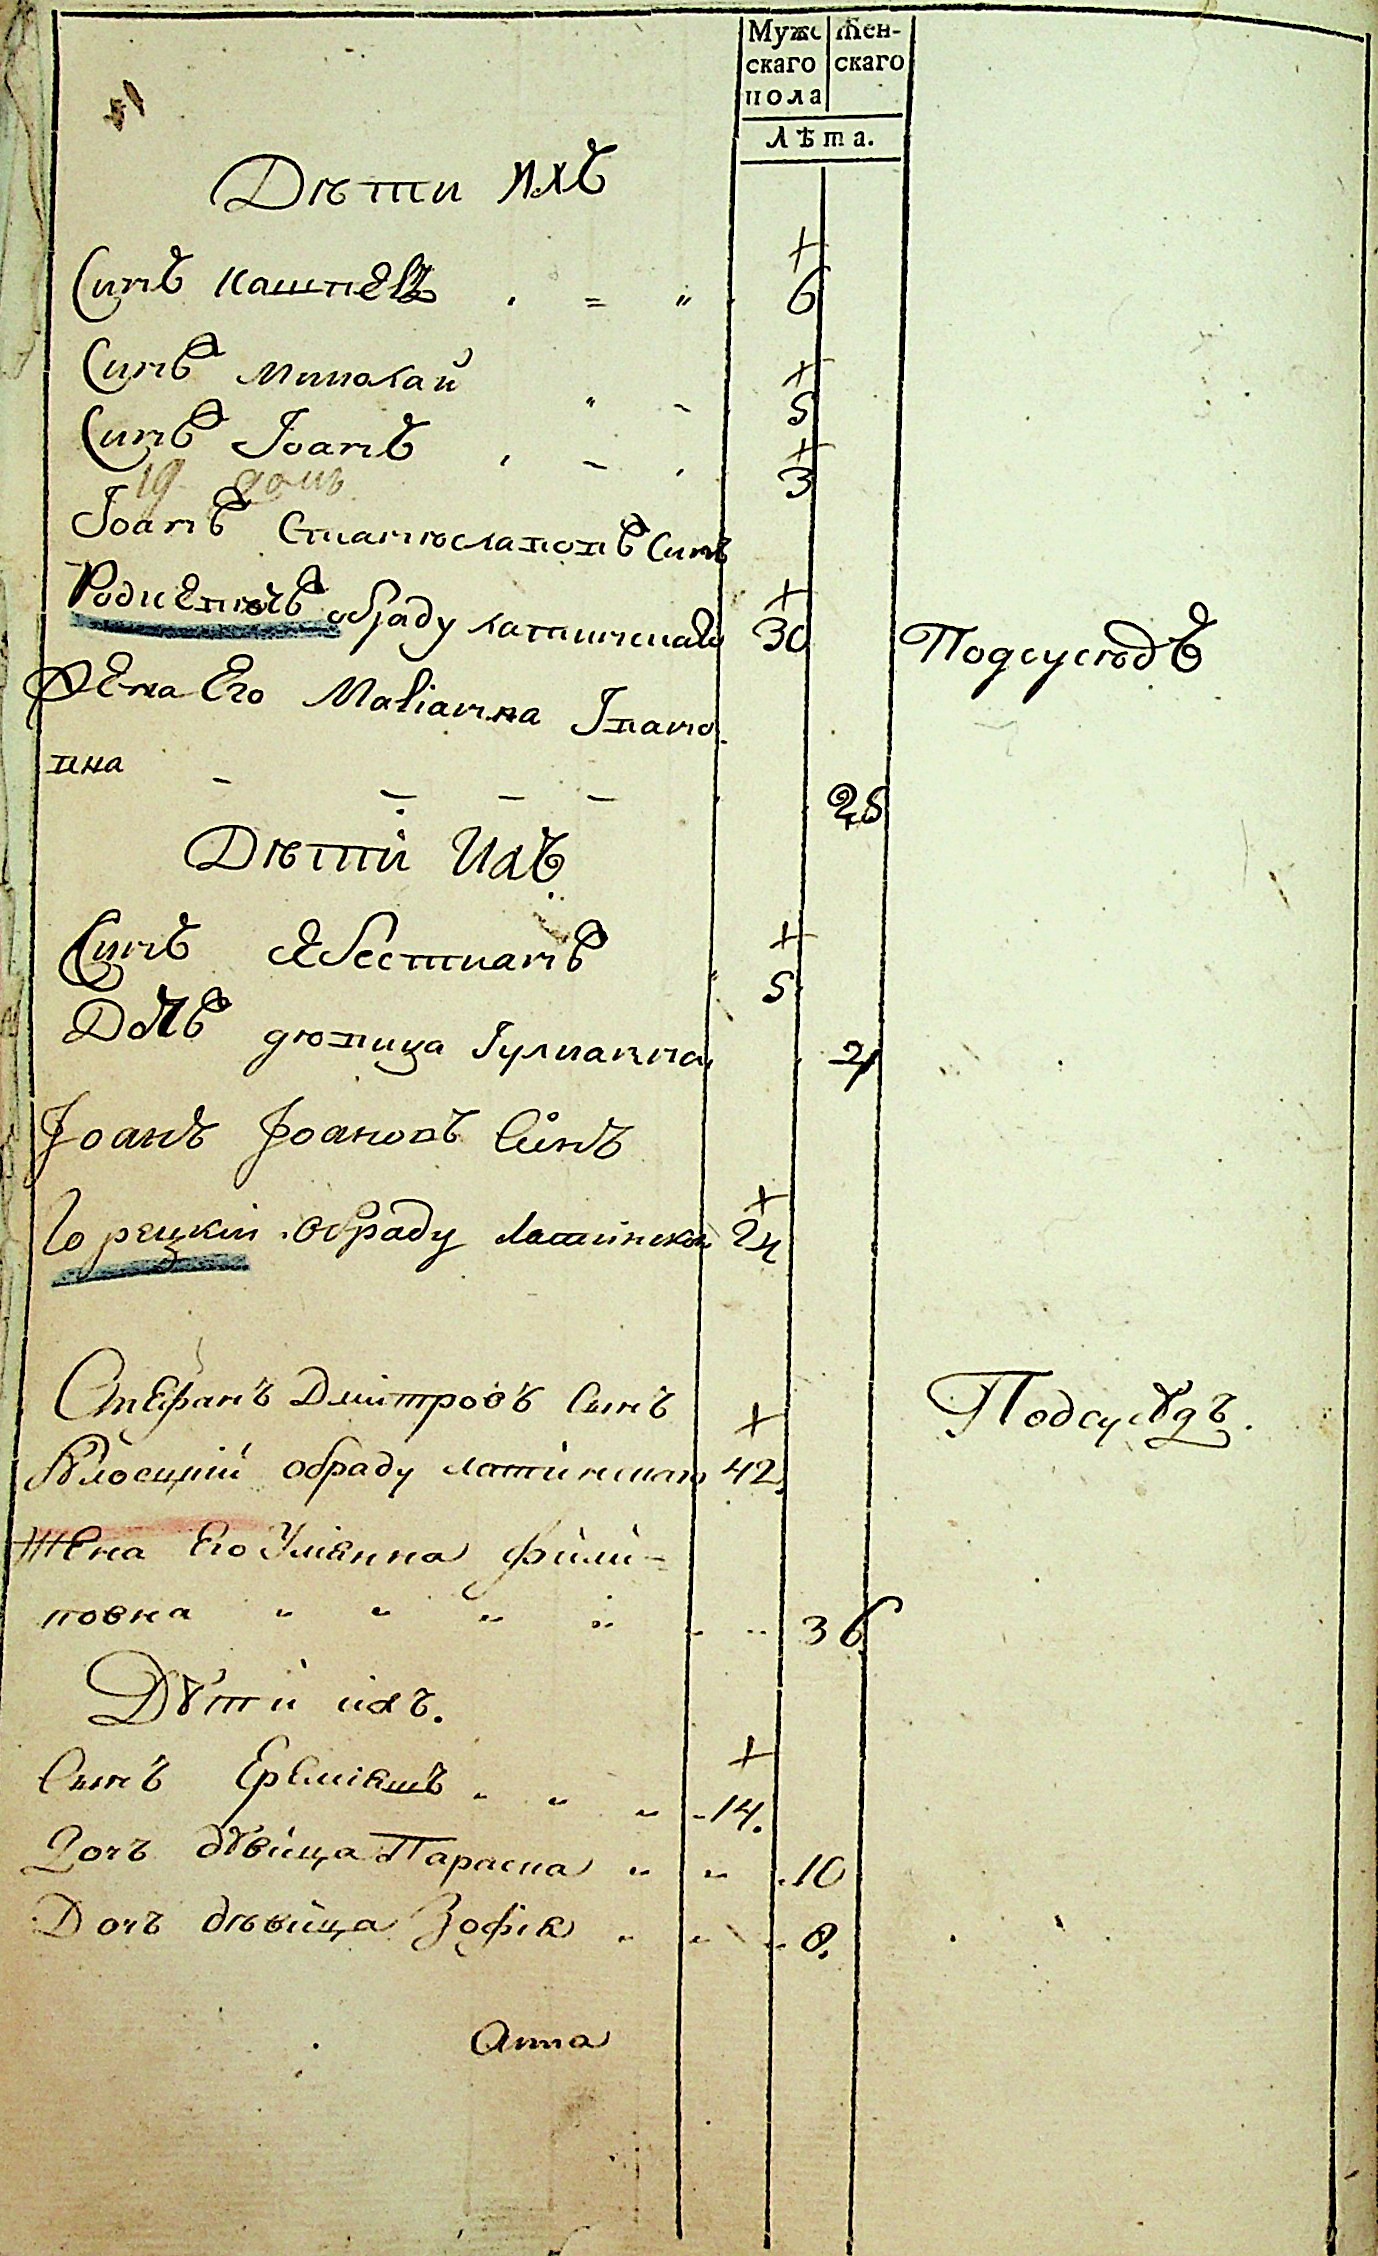 Мужс Жен-
скаго скаго
пола
Лѣта.
Дѣти ихъ
Синъ 6
Синъ Миколай 5
Синъ Іоанъ 3
19 домъ
Іоанъ Станѣславовъ Синъ
обраду латинскаго 30 Подсусѣдъ
Жена Его Маріанна Івано
вна 25
Дѣти Ихъ
Синъ Себестианъ 5
Дочъ дѣвица Іулианна 2
Іоанъ Іоановъ Синъ
Горецкій обраду Латинскаго 24
Стефанъ Дмітровъ Сынъ Подсусѣдъ.
обраду латинскаго 42
Жена Его Уліянна Філи-
повна 36
Дѣти ихъ.
Сынъ Ереміяшъ 14.
Дочъ дѣвица Параска 10
Дочъ дѣвица Зофія 8.
Анна